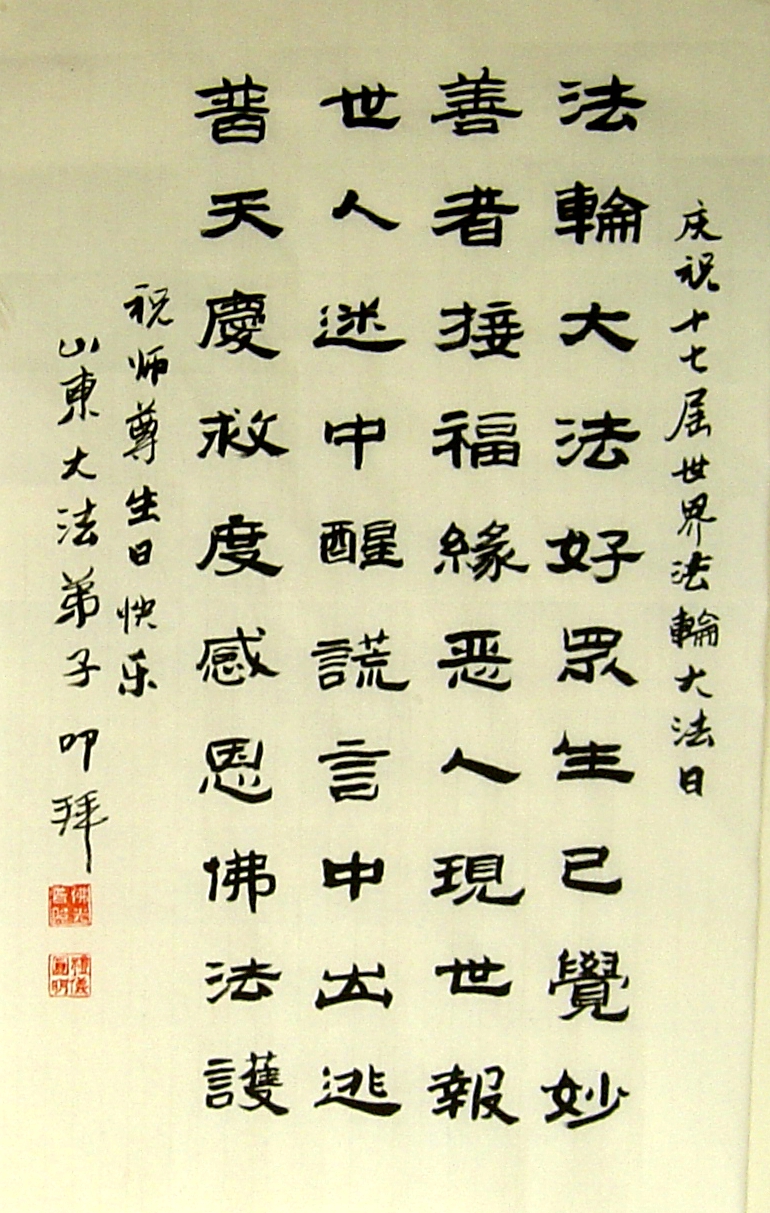 庆祝十七届世界法輪大法日
法輪大法好眾生已覺妙
善者接福緣恶人現世報
世人迷中醒謊言中出逃
普天慶救度感恩佛法護
祝师尊生日快乐
山東大法弟子 叩拜